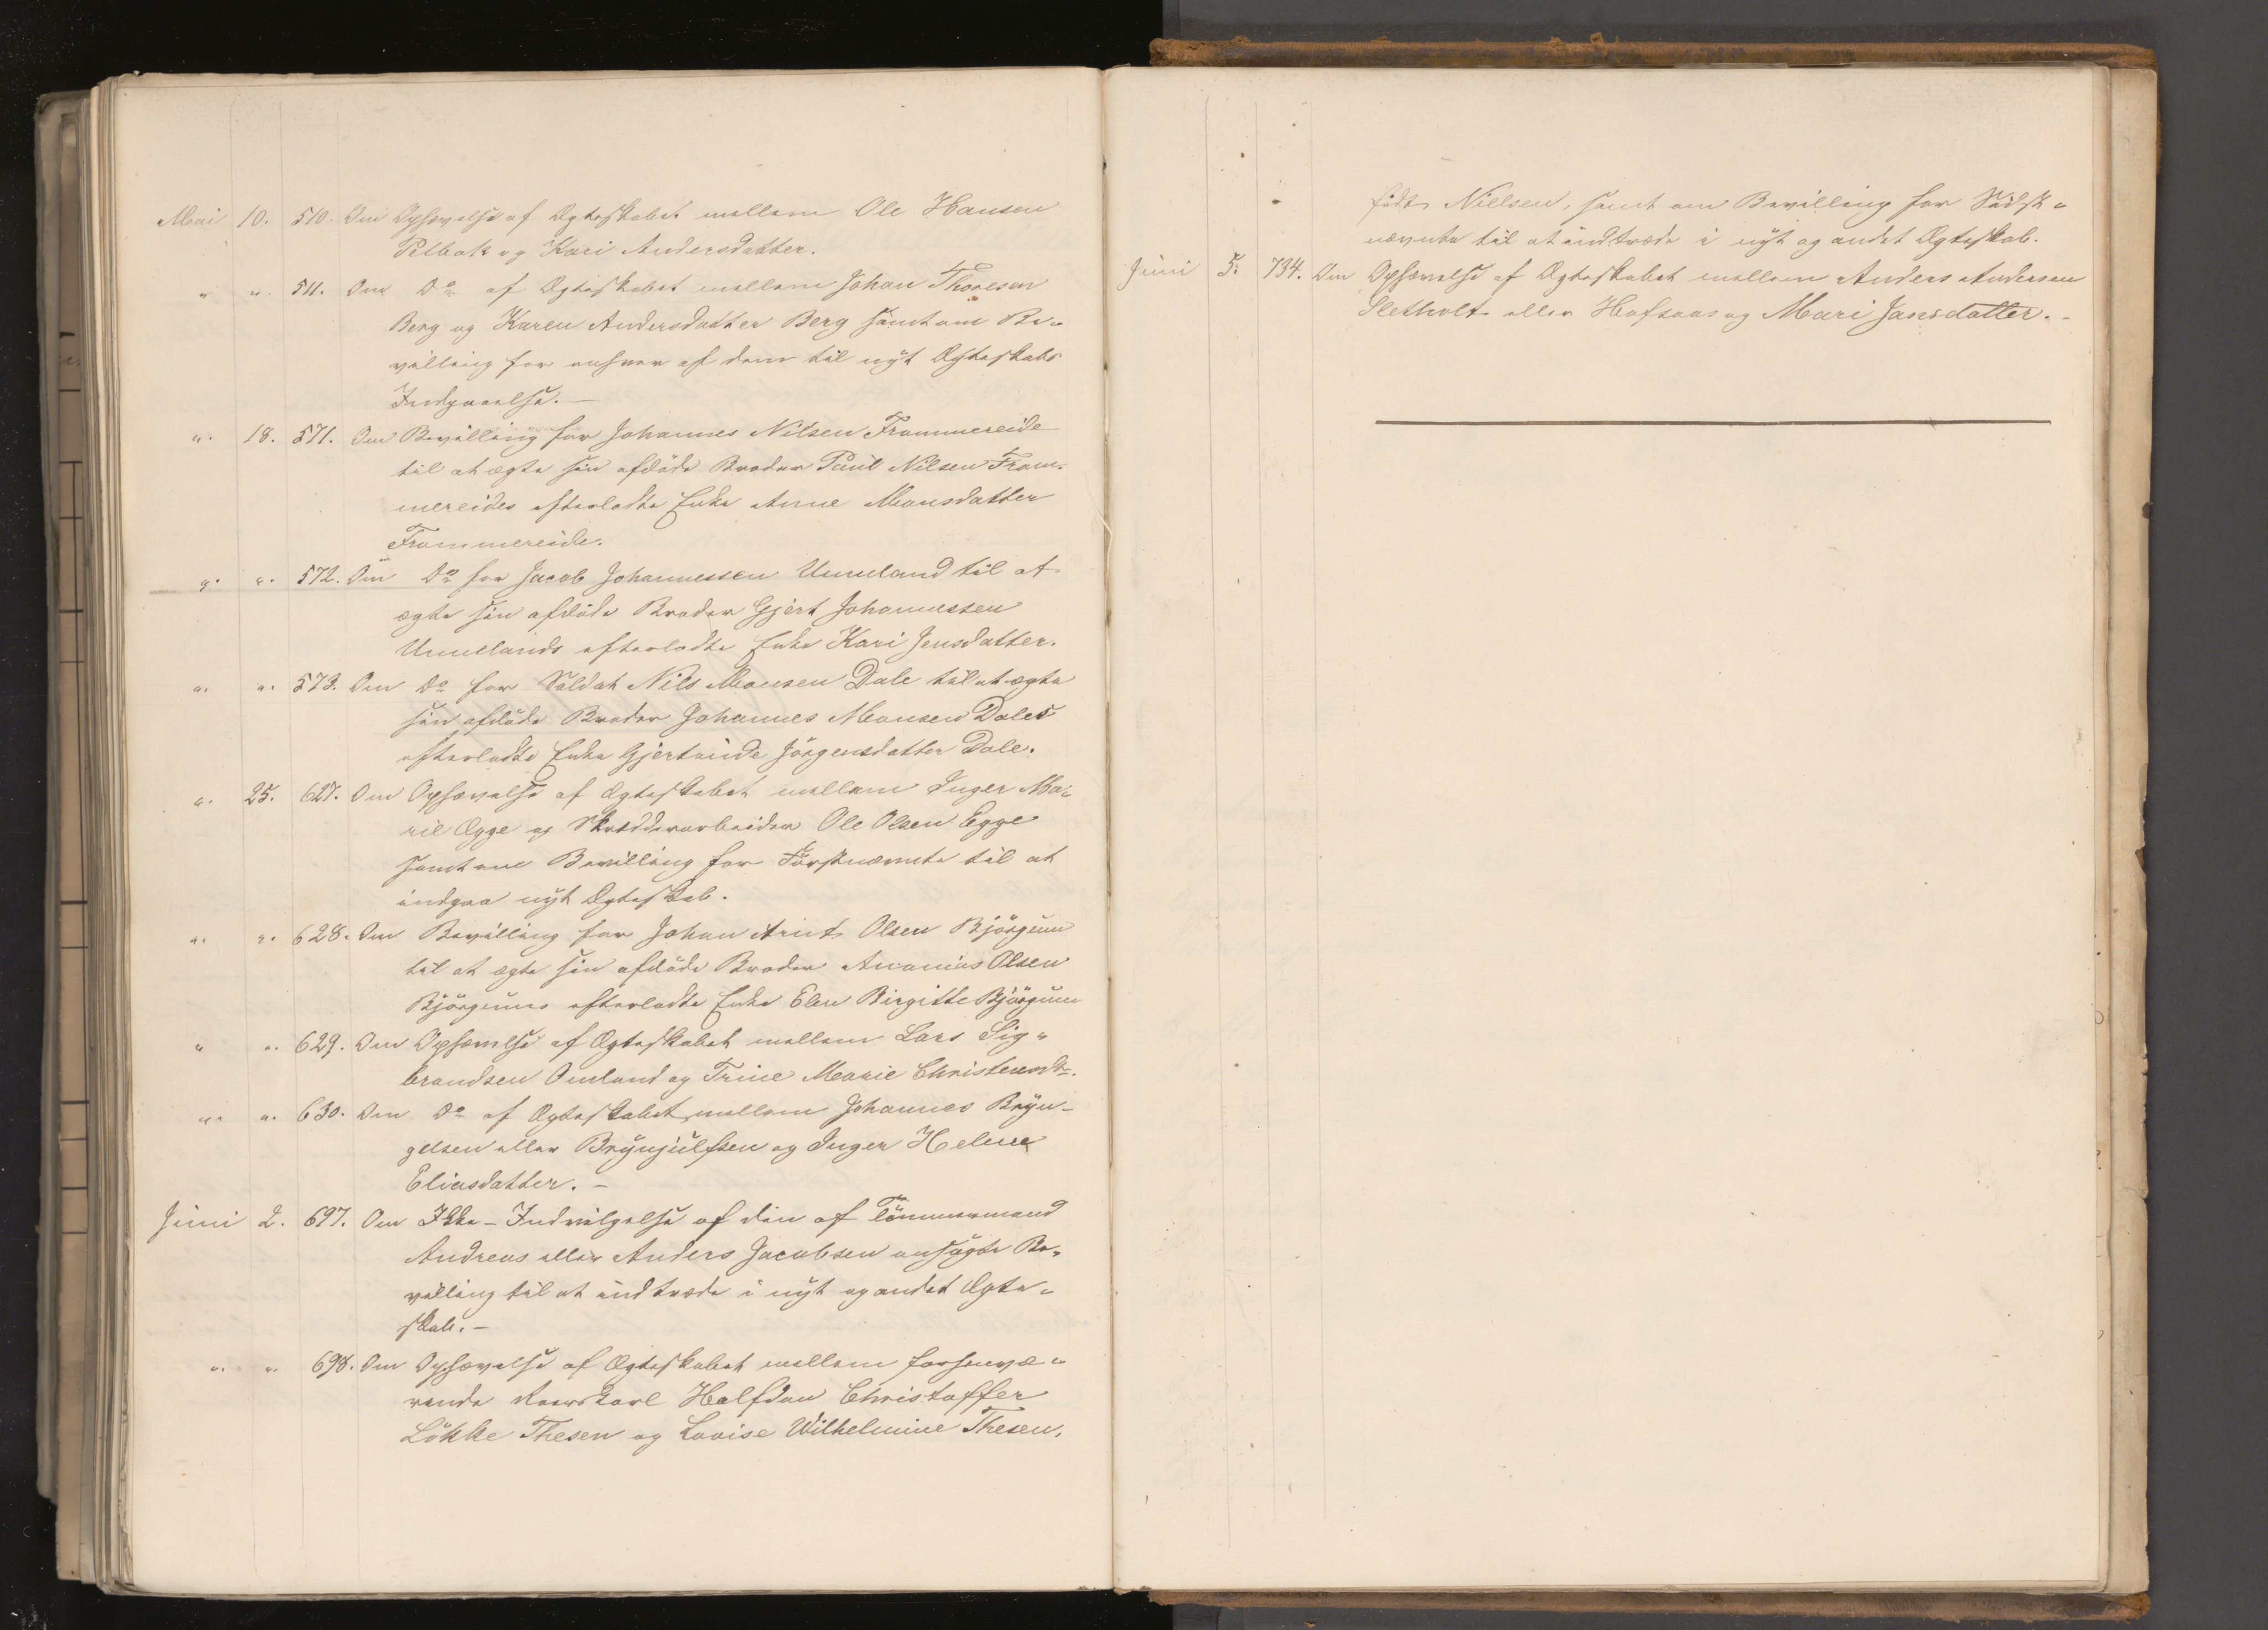 Mai 10. 510. Om Ophævelse af Ægteskabet mellem Ole Hansen
Pelbak og Kari Andersdatter.
" ". 511. Om Do af Ægteskabet mellem Johan Thoresen
Berg og Karen Andersdatter Berg samt om Be-
villing for enhver af dem til nyt Ægteskabs
Indgaaelse. —
". 18. 571. Om Bevilling for Johannes Nilsen Frammereide
til at ægte sin afdöde Broder Paul Nilsen Fram-
mereides efterladte Enke Anne Monsdatter
Frammereide.
". ". 572. Om Do for Jacob Johannessen Unneland til at
ægte sin afdöde Broder Gjert Johannessen
Unnelands efterladte Enke Kari Jensdatter.
". ". 573. Om Do for Soldat Nils Monsen Dale til at ægte
sin afdöde Broder Johannes Monsen Dales
efterladte Enke Gjertinde Jörgensdatter Dale.
". 25. 627. Om Ophævelse af Ægteskabet mellem Inger Ma-
rie Egge og Skrædderarbeider Ole Olsen Egge
samt om Bevilling for Förstnævnte til at
indgaa nyt Ægteskab.
". ". 628. Om Bevilling for Johan Arnt Olsen Björgum
til at ægte sin afdöde Broder Ananias Olsen
Björgums efterladte Enke Elen Birgitte Björgum
" ". 629. Om Ophævelse af Ægteskabet mellem Lars Sig-
brandsen Omland og Trine Marie Christensdtr.
". ". 630. Om Do af Ægteskabet mellem Johannes Bryn-
gelsen eller Brynjulfsen og Inger Helene
Eliasdatter. —
Juni 2. 697. Om Ikke-Indvilgelse af den af Tömmermand
Andreas eller Anders Jacobsen ansögte Be-
villing til at indtræde i nyt og andet Ægte-
skab. —
". ". 698. Om Ophævelse af Ægteskabet mellem forhenvæ-
rende Roerskarl Halfdan Christoffer
Lökke Thesen og Lovise Wilhelmine Thesen,
födt Nielsen, samt om Bevilling for Sidst-
nævnte til at indtræde i nyt og andet Ægteskab.
Juni 5. 734. Om Ophævelse af Ægteskabet mellem Anders Andersen
Sletholt eller Hofsaas og Mari Jansdatter. —